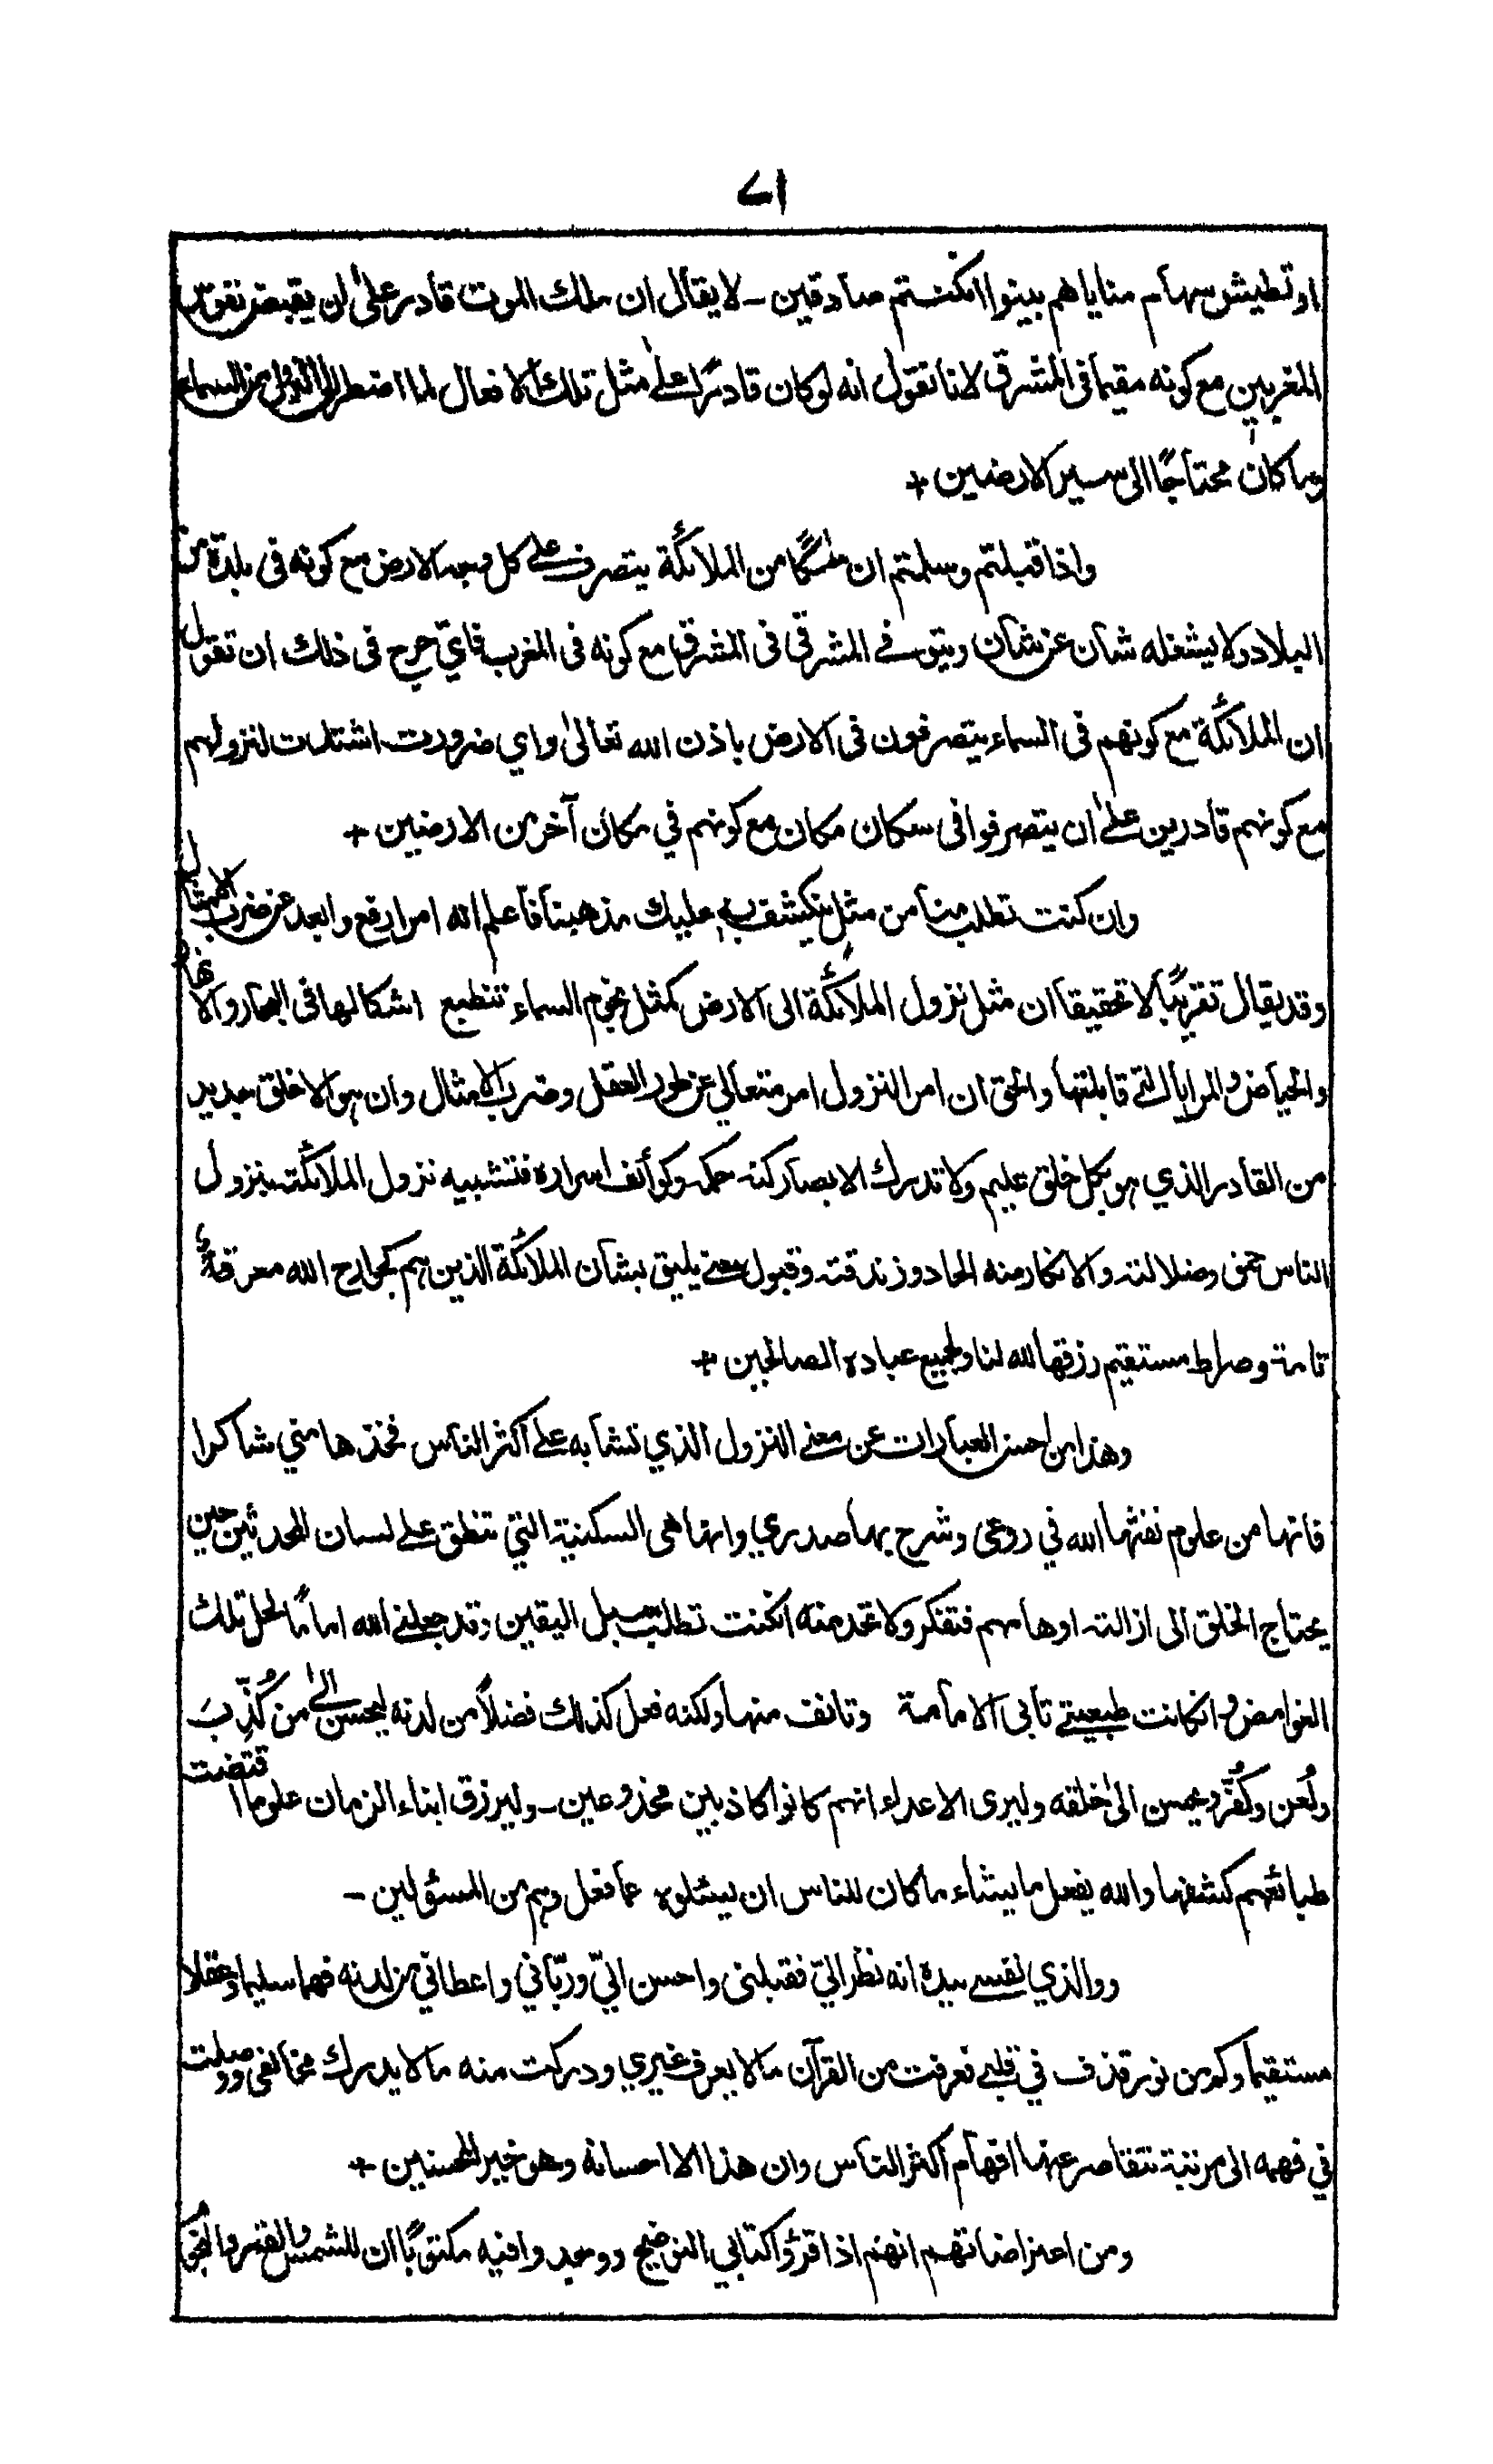 ۷۱
او تطيش سهام مناياهم بينوا انكنتم صادقين - لا يقال ان ملك الموت قادر على ان يقبض نفوس
المغربين مع كونه مقيما فى المشرق لانا نقول انه لو كان قادرًا على مثل تلك الافعال لما اضطر الى النزول من السماء
وما كان محتاجًا الى سير الارضين +
واذا قبلتم وسلمتم ان ملكًا من الملائكة يتصرف على كل وجه الارض مع كونه فى بلدة من
البلاد ولا يشغله شأن عن شأن ويتوفى المشرقى فى المشرق مع كونه فى المغرب فايّ حرج فى ذلك ان تقول
ان الملائكة مع كونهم فى السماء يتصرفون فى الارض باذن الله تعالىٰ واي ضرورت اشتدت لنزولهم
مع كونهم قادرين علىٰ ان يتصرفوا فى سكان مكان مع كونهم في مكان آخر من الارضين +
وان كنت تطلب منا من مثل ينكشف به عليك مذهبنا فاعلم انه امر ارفع وابعد عن ضرب الامثال
وقد يقال تقريبًا لا تحقيقا ان مثل نزول الملائكة الى الارض كمثل نجوم السماء تنطبع اشكالها فى البحار والانهار
والحياض والمرايا التى قابلتها والحق ان امر النزول امر متعالي عن طور العقل وضرب الامثال وان هو الا خلق جديد
من القادر الذي هو بكل خلق عليم ولا تدرك الابصار كنه حكمه وكوائف اسراره فتشبيه نزول الملائكة بنزول
الناس حمق وضلالة والانكار منه الحاد وزندقة وقبول معنى يليق بشان الملائكة الذين هم كجوارح الله معرفةٌ
تامة وصراط مستقيم رزقها الله لنا ولجميع عباده الصالحين +
وهذا من احسن العبارات عن معنى النزول الذي تشابه على اكثر الناس فخذها مني شاكرا
فانها من علوم نفثها الله في روعى وشرح بها صدري وانها هى السكينة التي تنطق على لسان المحدثين حين
يحتاج الخلق الى ازالة اوهامهم فتفكر ولا تحد منه انكنت تطلب سبل اليقين وقد جعلنى الله امامًا لحل تلك
الغوامض وانكانت طبيعتى تأبى الامامة وتانف منها ولكنه فعل كذلك فضلًا من لدنه ليحسن الىٰ من كُذِّبَ
ولُعن وكُفّر ويحسن الىٰ خلقه وليرى الاعداء انهم كانوا كاذبين مخدوعين - وليرزق ابناء الزمان علوما اقتضت
طبائعهم كشفها والله يفعل ما يشاء ما كان للناس ان يسئلوه عما فعل وهم من المسئولين -
ووالذي نفسى بيده انه نظر اليّ فقبلنى واحسن اليّ وربّاني واعطاني من لدنه فهما سليما وعقلا
مستقيما وكم من نور قذف في قلبى فعرفت من القرآن ما لا يعرف غيري ودركت منه ما لا يدرك مخالفى ووصلت
في فهمه الى مرتبة تتقاصر عنها افهام اكثر الناس وان هذا الا احسانه وهو خير المحسنين +
ومن اعتراضاتهم انهم اذا قرؤا كتابي التوضيح ووجدوا فيه مكتوبًا ان للشمس والقمر والنجوم